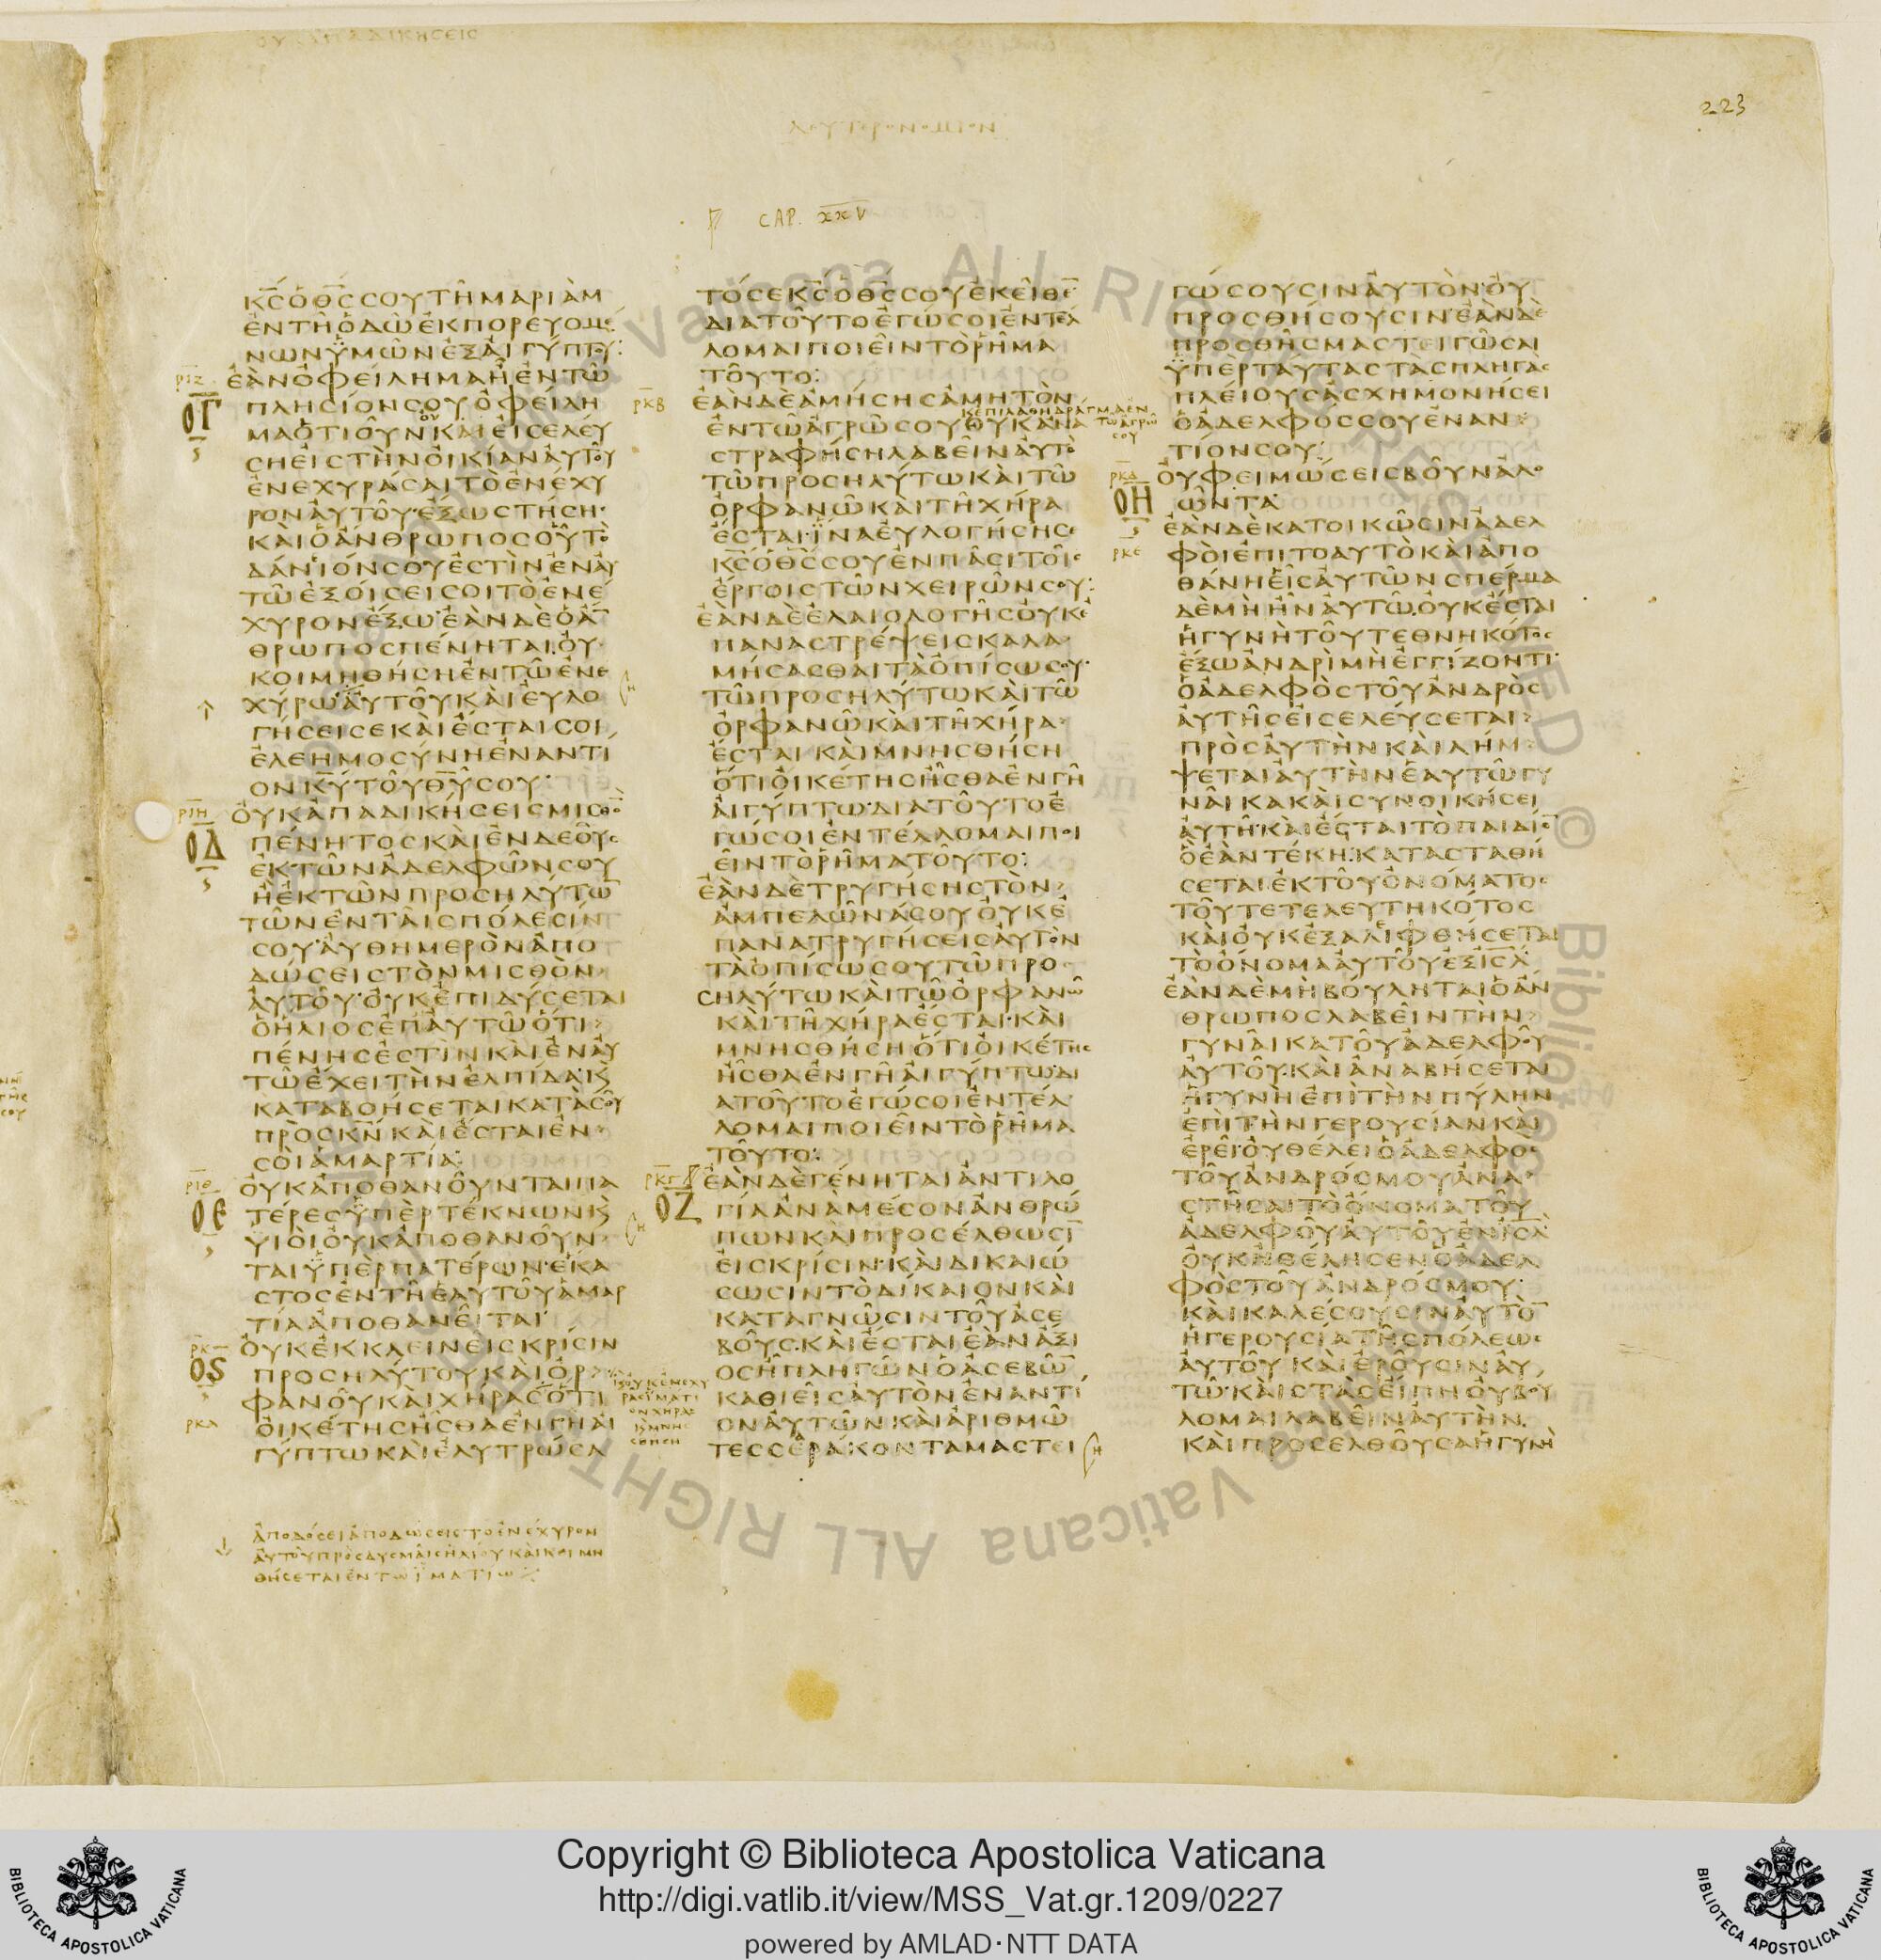 ΔΕΥΤΕΡΟΝΟΜΙΟΝ
223
CAP. XXV
Κ̅Σ̅ Ο Θ̅Σ̅ ΣΟΥ ΤΗ ΜΑΡΙΑΜ
ΕΝ ΤΗ ΟΔΩ ΕΚΠΟΡΕΥΟΜΕ
ΝΩΝ ΥΜΩΝ ΕΞ ΑΙΓΥΠΤΟΥ:
ΕΑΝ ΟΦΕΙΛΗΜΑ Η ΕΝ ΤΩ
ΠΛΗΣΙΟΝ ΣΟΥ ΟΦΕΙΛΗ
ΜΑ ΟΤΙΟΥΝ ΚΑΙ ΕΙΣΕΛΕΥ
ΣΗ ΕΙΣ ΤΗΝ ΟΙΚΙΑΝ ΑΥΤΟΥ
ΕΝΕΧΥΡΑΣΑΙ ΤΟ ΕΝΕΧΥ
ΡΟΝ ΑΥΤΟΥ· ΕΞΩ ΣΤΗΣΗ·
ΚΑΙ Ο ΑΝΘΡΩΠΟΣ ΟΥ ΤΟ
ΔΑΝΙΟΝ ΣΟΥ ΕΣΤΙΝ ΕΝ ΑΥ
ΤΩ ΕΞΟΙΣΕΙ ΣΟΙ ΤΟ ΕΝΕ
ΧΥΡΟΝ ΕΞΩ· ΕΑΝ ΔΕ Ο Α̅
ΘΡΩΠΟΣ ΠΕΝΗΤΑΙ ΟΥ
ΚΟΙΜΗΘΗΣΗ ΕΝ ΤΩ ΕΝΕ
ΧΥΡΩ ΑΥΤΟΥ ΚΑΙ ΕΥΛΟ
ΓΗΣΕΙ ΣΕ ΚΑΙ ΕΣΤΑΙ ΣΟΙ
ΕΛΕΗΜΟΣΥΝΗ ΕΝΑΝΤΙ
ΟΝ Κ̅Υ̅ ΤΟΥ Θ̅Υ̅ ΣΟΥ:
ΟΥΚ ΑΠΑΔΙΚΗΣΕΙΣ ΜΙΣΘΟ̅
ΠΕΝΗΤΟΣ ΚΑΙ ΕΝΔΕΟΥΣ
ΕΚ ΤΩΝ ΑΔΕΛΦΩΝ ΣΟΥ
Η ΕΚ ΤΩΝ ΠΡΟΣΗΛΥΤΩ̅
ΤΩΝ ΕΝ ΤΑΙΣ ΠΟΛΕΣΙΝ
ΣΟΥ· ΑΥΘΗΜΕΡΟΝ ΑΠΟ
ΔΩΣΕΙΣ ΤΟΝ ΜΙΣΘΟΝ
ΑΥΤΟΥ· ΟΥΚ ΕΠΙΔΥΣΕΤΑΙ
Ο ΗΛΙΟΣ ΕΠ ΑΥΤΩ ΟΤΙ
ΠΕΝΗΣ ΕΣΤΙΝ ΚΑΙ ΕΝ ΑΥ
ΤΩ ΕΧΕΙ ΤΗΝ ΕΛΠΙΔΑ· Κ
ΚΑΤΑΒΟΗΣΕΤΑΙ ΚΑΤΑ ΣΟΥ
ΠΡΟΣ Κ̅Ν̅ ΚΑΙ ΕΣΤΑΙ ΕΝ
ΣΟΙ ΑΜΑΡΤΙΑ:
ΟΥΚ ΑΠΟΘΑΝΟΥΝΤΑΙ ΠΑ
ΤΕΡΕΣ ΥΠΕΡ ΤΕΚΝΩΝ Κ
ΥΙΟΙ ΟΥΚ ΑΠΟΘΑΝΟΥΝ
ΤΑΙ ΥΠΕΡ ΠΑΤΕΡΩΝ· ΕΚΑ
ΣΤΟΣ ΕΝ ΤΗ ΕΑΥΤΟΥ ΑΜΑΡ
ΤΙΑ ΑΠΟΘΑΝΕΙΤΑΙ
ΟΥΚ ΕΚΚΛΕΙΝΕΙΣ ΚΡΙΣΙΝ
ΠΡΟΣΗΛΥΤΟΥ ΚΑΙ ΟΡ
ΦΑΝΟΥ ΚΑΙ ΧΗΡΑΣ ΟΤΙ
ΟΙΚΕΤΗΣ ΗΣΘΑ ΕΝ ΓΗ ΑΙ
ΓΥΠΤΩ ΚΑΙ ΕΛΥΤΡΩΣΑ
ΑΠΟΔΟΣΕΙ ΑΠΟΔΩΣΕΙΣ ΤΟ ΕΝΕΧΥΡΟΝ
ΑΥΤΟΥ ΠΡΟΣ ΔΥΣΜΑΙΣ ΗΛΙΟΥ ΚΑΙ ΚΟΙΜΗ
ΘΗΣΕΤΑΙ ΕΝ ΤΩ ΙΜΑΤΙΩ
ΤΟ ΣΕ Κ̅Σ̅ Ο Θ̅Σ̅ ΣΟΥ ΕΚΕΙΘΕ̅
ΔΙΑ ΤΟΥΤΟ ΕΓΩ ΣΟΙ ΕΝΤΕΛ
ΛΟΜΑΙ ΠΟΙΕΙΝ ΤΟ ΡΗΜΑ
ΤΟΥΤΟ:
ΕΑΝ ΔΕ ΑΜΗΣΗΣ ΑΜΗΤΟΝ
ΕΝ ΤΩ ΑΓΡΩ ΣΟΥ ΟΥΚ ΑΝΑ
ΣΤΡΑΦΗΣΗ ΛΑΒΕΙΝ ΑΥΤΟ
ΤΩ ΠΡΟΣΗΛΥΤΩ ΚΑΙ ΤΩ
ΟΡΦΑΝΩ ΚΑΙ ΤΗ ΧΗΡΑ
ΕΣΤΑΙ· ΙΝΑ ΕΥΛΟΓΗΣΗ ΣΕ
Κ̅Σ̅ Ο Θ̅Σ̅ ΣΟΥ ΕΝ ΠΑΣΙ ΤΟΙΣ
ΕΡΓΟΙΣ ΤΩΝ ΧΕΙΡΩΝ ΣΟΥ:
ΕΑΝ ΔΕ ΕΛΑΙΟΛΟΓΗΣ ΟΥΚ Ε
ΠΑΝΑΣΤΡΕΨΕΙΣ ΚΑΛΑ
ΜΗΣΑΣΘΑΙ ΤΑ ΟΠΙΣΩ ΣΟΥ·
ΤΩ ΠΡΟΣΗΛΥΤΩ ΚΑΙ ΤΩ
ΟΡΦΑΝΩ ΚΑΙ ΤΗ ΧΗΡΑ
ΕΣΤΑΙ ΚΑΙ ΜΝΗΣΘΗΣΗ
ΟΤΙ ΟΙΚΕΤΗΣ ΗΣΘΑ ΕΝ ΓΗ
ΑΙΓΥΠΤΩ· ΔΙΑ ΤΟΥΤΟ Ε
ΓΩ ΣΟΙ ΕΝΤΕΛΛΟΜΑΙ ΠΟΙ
ΕΙΝ ΤΟ ΡΗΜΑ ΤΟΥΤΟ:
ΕΑΝ ΔΕ ΤΡΥΓΗΣΗΣ ΤΟΝ
ΑΜΠΕΛΩΝΑ ΣΟΥ ΟΥΚ Ε
ΠΑΝΑΤΡΥΓΗΣΕΙΣ ΑΥΤΟΝ
ΤΑ ΟΠΙΣΩ ΣΟΥ ΤΩ ΠΡΟ
ΣΗΛΥΤΩ ΚΑΙ ΤΩ ΟΡΦΑΝΩ
ΚΑΙ ΤΗ ΧΗΡΑ ΕΣΤΑΙ· ΚΑΙ
ΜΝΗΣΘΗΣΗ ΟΤΙ ΟΙΚΕΤΗΣ
ΗΣΘΑ ΕΝ ΓΗ ΑΙΓΥΠΤΩ· ΔΙ
Α ΤΟΥΤΟ ΕΓΩ ΣΟΙ ΕΝΤΕΛ
ΛΟΜΑΙ ΠΟΙΕΙΝ ΤΟ ΡΗΜΑ
ΤΟΥΤΟ:
ΕΑΝ ΔΕ ΓΕΝΗΤΑΙ ΑΝΤΙΛΟ
ΓΙΑ ΑΝΑ ΜΕΣΟΝ ΑΝΘΡΩ
ΠΩΝ ΚΑΙ ΠΡΟΣΕΛΘΩΣΙ̅
ΕΙΣ ΚΡΙΣΙΝ· ΚΑΙ ΔΙΚΑΙΩ
ΣΩΣΙΝ ΤΟ ΔΙΚΑΙΟΝ ΚΑΙ
ΚΑΤΑΓΝΩΣΙΝ ΤΟΥ ΑΣΕ
ΒΟΥΣ· ΚΑΙ ΕΣΤΑΙ ΕΑΝ ΑΞΙ
ΟΣ Η ΠΛΗΓΩΝ Ο ΑΣΕΒΩ̅
ΚΑΘΙΕΙΣ ΑΥΤΟΝ ΕΝΑΝΤΙ
ΟΝ ΑΥΤΩΝ ΚΑΙ ΑΡΙΘΜΩ
ΤΕΣΣΕΡΑΚΟΝΤΑ ΜΑΣΤΕΙ
ΓΩΣΟΥΣΙΝ ΑΥΤΟΝ· ΟΥ
ΠΡΟΣΘΗΣΟΥΣΙΝ· ΕΑΝ ΔΕ
ΠΡΟΣΘΗΣ ΜΑΣΤΕΙΓΩΣΑΙ
ΥΠΕΡ ΤΑΥΤΑΣ ΤΑΣ ΠΛΗΓΑΣ
ΠΛΕΙΟΥΣ ΑΣΧΗΜΟΝΗΣΕΙ
Ο ΑΔΕΛΦΟΣ ΣΟΥ ΕΝΑΝ
ΤΙΟΝ ΣΟΥ:
ΟΥ ΦΕΙΜΩΣΕΙΣ ΒΟΥΝ ΑΛΟ
ΩΝΤΑ·
ΕΑΝ ΔΕ ΚΑΤΟΙΚΩΣΙΝ ΑΔΕΛ
ΦΟΙ ΕΠΙ ΤΟ ΑΥΤΟ ΚΑΙ ΑΠΟ
ΘΑΝΗ ΕΙΣ ΑΥΤΩΝ ΣΠΕΡΜΑ
ΔΕ ΜΗ ΗΝ ΑΥΤΩ· ΟΥΚ ΕΣΤΑΙ
Η ΓΥΝΗ ΤΟΥ ΤΕΘΝΗΚΟΤΟΣ
ΕΞΩ ΑΝΔΡΙ ΜΗ ΕΓΓΙΖΟΝΤΙ·
Ο ΑΔΕΛΦΟΣ ΤΟΥ ΑΝΔΡΟΣ
ΑΥΤΗΣ ΕΙΣΕΛΕΥΣΕΤΑΙ
ΠΡΟΣ ΑΥΤΗΝ ΚΑΙ ΛΗΜ
ΨΕΤΑΙ ΑΥΤΗΝ ΕΑΥΤΩ ΓΥ
ΝΑΙΚΑ ΚΑΙ ΣΥΝΟΙΚΗΣΕΙ
ΑΥΤΗ· ΚΑΙ ΕΣΤΑΙ ΤΟ ΠΑΙΔΙΟ̅
Ο ΕΑΝ ΤΕΚΗ· ΚΑΤΑΣΤΑΘΗ
ΣΕΤΑΙ ΕΚ ΤΟΥ ΟΝΟΜΑΤΟΣ
ΤΟΥ ΤΕΤΕΛΕΥΤΗΚΟΤΟΣ
ΚΑΙ ΟΥΚ ΕΞΑΛΙΦΘΗΣΕΤΑΙ
ΤΟ ΟΝΟΜΑ ΑΥΤΟΥ ΕΞ Ι̅Σ̅Λ̅·
ΕΑΝ ΔΕ ΜΗ ΒΟΥΛΗΤΑΙ Ο ΑΝ
ΘΡΩΠΟΣ ΛΑΒΕΙΝ ΤΗΝ
ΓΥΝΑΙΚΑ ΤΟΥ ΑΔΕΛΦΟΥ
ΑΥΤΟΥ· ΚΑΙ ΑΝΑΒΗΣΕΤΑΙ
Η ΓΥΝΗ ΕΠΙ ΤΗΝ ΠΥΛΗΝ
ΕΠΙ ΤΗΝ ΓΕΡΟΥΣΙΑΝ ΚΑΙ
ΕΡΕΙ· ΟΥ ΘΕΛΕΙ Ο ΑΔΕΛΦΟΣ
ΤΟΥ ΑΝΔΡΟΣ ΜΟΥ ΑΝΑ
ΣΤΗΣΑΙ ΤΟ ΟΝΟΜΑ ΤΟΥ
ΑΔΕΛΦΟΥ ΑΥΤΟΥ ΕΝ Ι̅Σ̅Λ̅·
ΟΥΚ ΗΘΕΛΗΣΕΝ Ο ΑΔΕΛ
ΦΟΣ ΤΟΥ ΑΝΔΡΟΣ ΜΟΥ:
ΚΑΙ ΚΑΛΕΣΟΥΣΙΝ ΑΥΤΟ̅
Η ΓΕΡΟΥΣΙΑ ΤΗΣ ΠΟΛΕΩΣ
ΑΥΤΟΥ ΚΑΙ ΕΡΟΥΣΙΝ ΑΥ
ΤΩ· ΚΑΙ ΣΤΑΣ ΕΙΠΗ ΟΥ ΒΟΥ
ΛΟΜΑΙ ΛΑΒΕΙΝ ΑΥΤΗΝ.
ΚΑΙ ΠΡΟΣΕΛΘΟΥΣΑ Η ΓΥΝΗ
Copyright © Biblioteca Apostolica Vaticana
http://digi.vatlib.it/view/MSS_Vat.gr.1209/0227
powered by AMLAD·NTT DATA
BIBLIOTECA APOSTOLICA VATICANA
BIBLIOTECA APOSTOLICA VATICANA